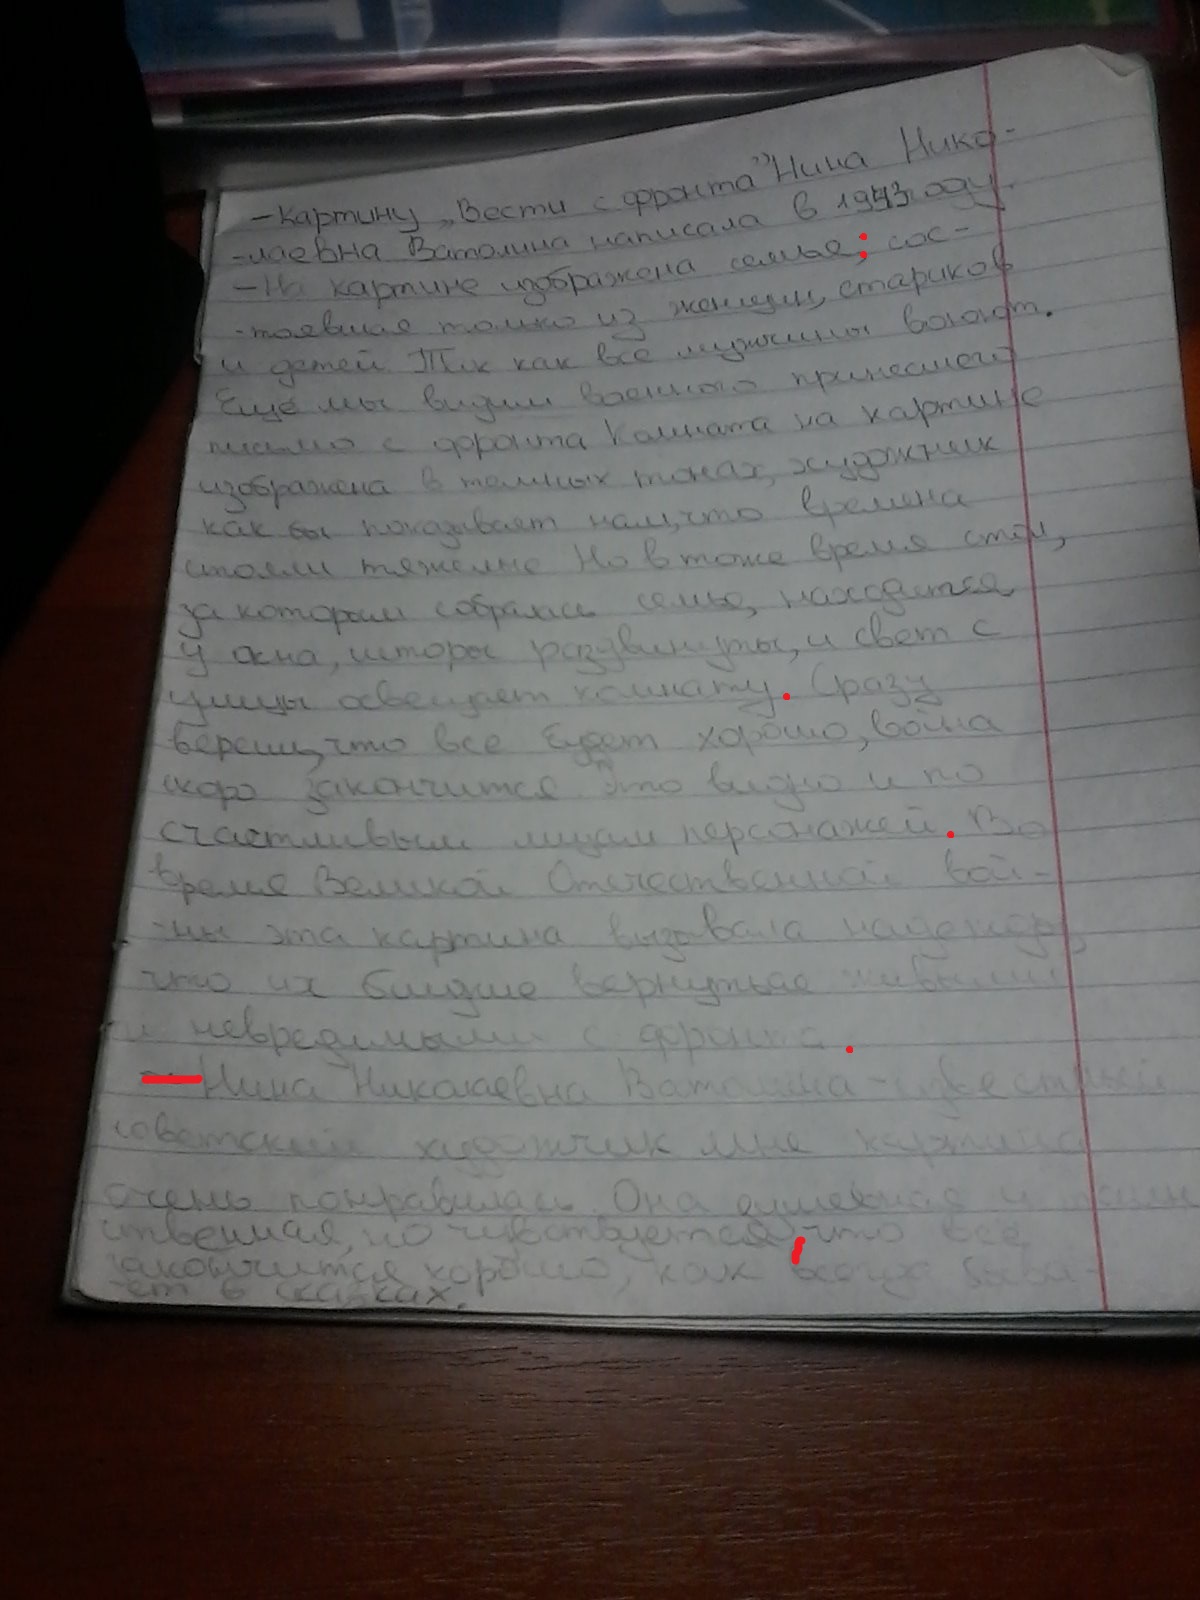 - Картину „Вести с фронта" Нина Нико-
-лаевна Ватолина написала в 1943 году.
- На картине изображена семья; сос-
-тоявшая только из женщин, стариков
и детей. Так как все мужчины воюют.
Ещё мы видим военного принесшего
письмо с фронта Комната на картине
изображена в темных тонах, художник
как бы показывает нам, что времена
стояли тяжелые Но в тоже время стол,
за которым собралась семья, находится
у окна, шторы раздвинуты, и свет с
улицы освещает комнату. Сразу
вериш, что все будет хорошо, война
скоро закончится Это видно и по
счастливым лицам персонажей. Во
время Великой Отечественной вой-
-ны эта картина вызывала надежду,
что их близкие вернуться живыми
и невредимыми с фронта.
- Нина Николаевна Ватолина - известный
советский художник мне картина
очень понравилась. Она душевная и
ственная, но чувствуется, что все
закончится хорошо, как всегда быва-
-ет в сказках.